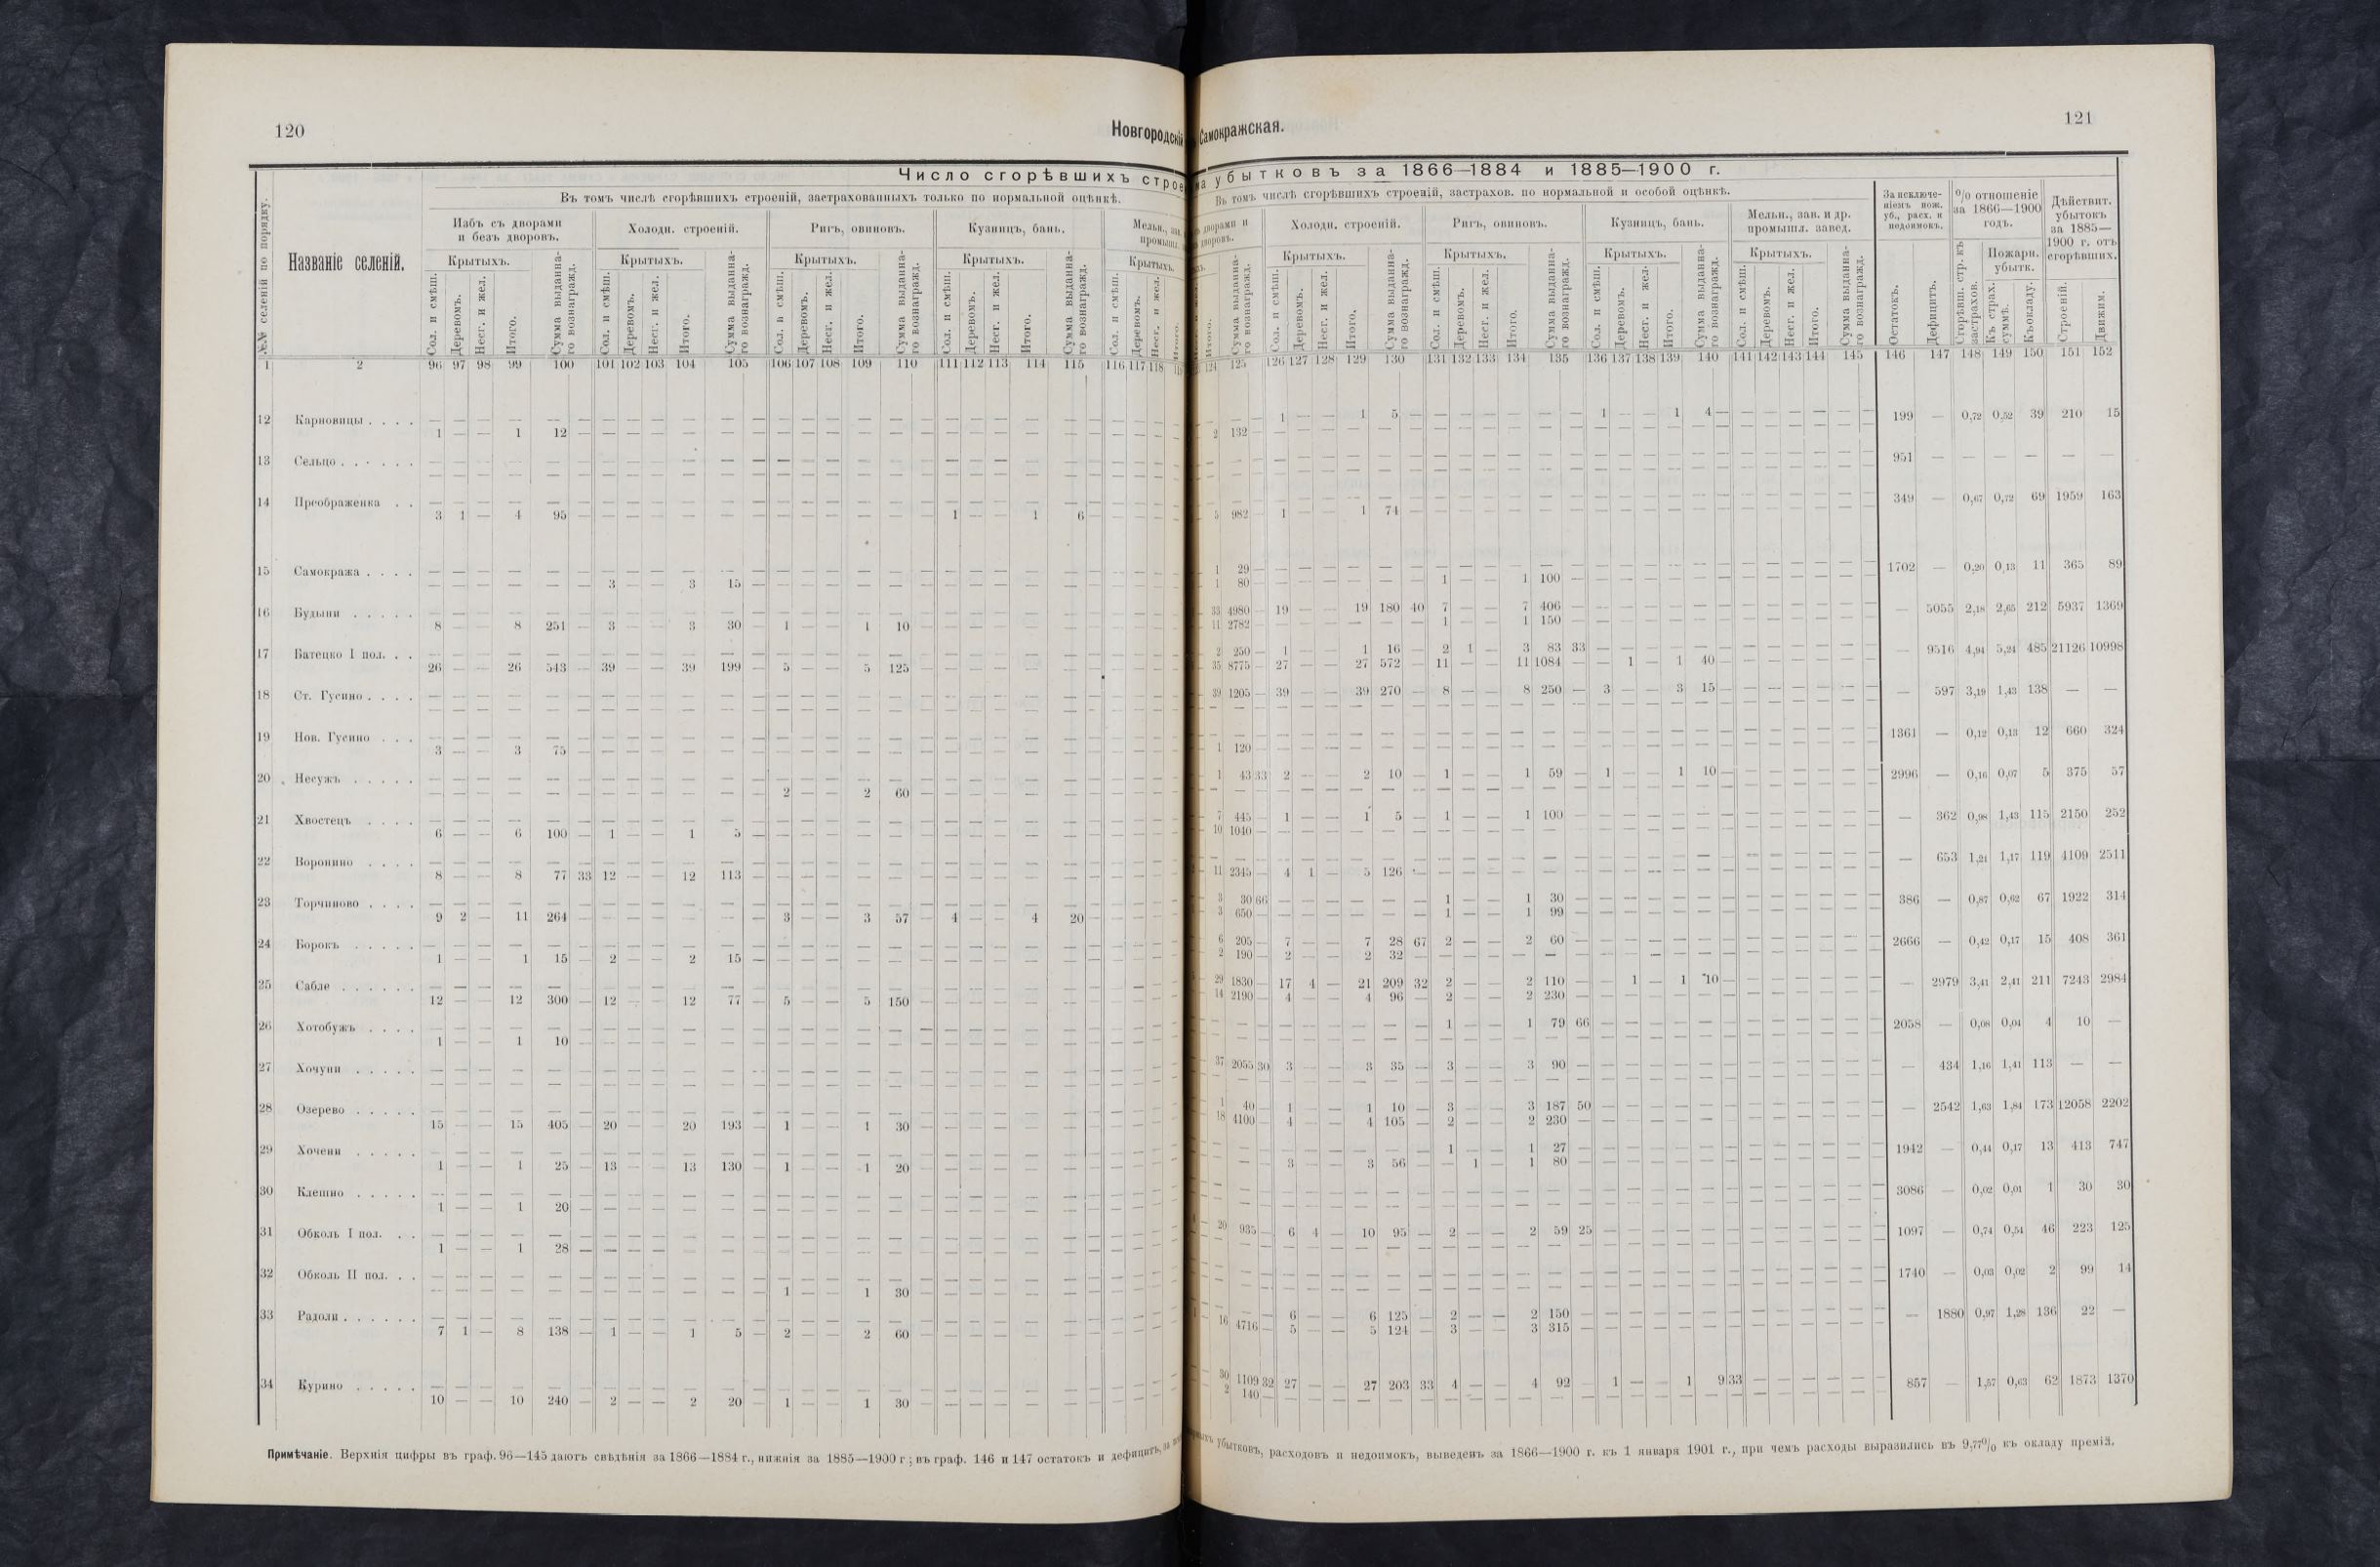 120
Новгородскі
Число сгорѣвшихъ строе
Въ томъ числѣ сгорѣвшихъ строеній, застрахованныхъ только по нормальной оцѣнкѣ.
№№ селеній по порядку.
Названіе селеній.
Избъ съ дворами и безъ дворовъ.
Холодн. строеній.
Ригъ, овиновъ.
Кузницъ, бань.
Крытыхъ. Крытыхъ. Крытыхъ. Крытыхъ. Крытыхъ.
Сол. и смѣш. Деревомъ. Несг. и жел. Итого. Сумма выданна-го вознагражд.
Сол. и смѣш. Деревомъ. Несг. и жел. Итого. Сумма выданна-го вознагражд.
Сол. и смѣш. Деревомъ. Несг. и жел. Итого. Сумма выданна-го вознагражд.
Сол. и смѣш. Деревомъ. Несг. и жел. Итого. Сумма выданна-го вознагражд.
Сол. и смѣш. Деревомъ. Несг. и жел.
1 2 96 97 98 99 100 101 102 103 104 105 106 107 108 109 110 111 112 113 114 115 116 117 118
12 Карновицы . . . .
1 — — 1 12 —
13 Сельцо . . . . . .
14 Преображенка . .
3 1 — 4 95 — 1 — — 1 6 —
15 Самокража . . . .
3 — — 3 15 —
16 Будыни . . . . .
8 — — 8 251 — 3 — — 3 30 — 1 — — 1 10 —
17 Батецко I пол. . .
26 — — 26 543 — 39 — — 39 199 — 5 — — 5 125 —
18 Ст. Гусино . . . .
19 Нов. Гусино . . .
3 — — 3 75 —
20 Несужъ . . . . .
2 — — 2 60 —
21 Хвостецъ . . . .
6 — — 6 100 — 1 — — 1 5 —
22 Воронино . . . .
8 — — 8 77 33 12 — — 12 113 —
23 Торчиново . . . .
9 2 — 11 264 — 3 — — 3 57 — 4 — — 4 20 —
24 Борокъ . . . . .
1 — — 1 15 — 2 — — 2 15 —
25 Сабле . . . . . .
12 — — 12 300 — 12 — — 12 77 — 5 — — 5 150 —
26 Хотобужъ . . . .
1 — — 1 10 —
27 Хочуни . . . . .
28 Озерево . . . . .
15 — — 15 405 — 20 — — 20 193 — 1 — — 1 30 —
29 Хочени . . . . .
1 — — 1 25 — 13 — — 13 130 — 1 — — 1 20 —
30 Клешно . . . . .
1 — — 1 20 —
31 Обколь I пол. . .
1 — — 1 28 —
32 Обколь II пол. . .
1 — — 1 30 —
33 Радоли . . . . . .
7 1 — 8 138 — 1 — — 1 5 — 2 — — 2 60 —
34 Курино . . . . .
10 — — 10 240 — 2 — — 2 20 — 1 — — 1 30 —
Примѣчаніе. Верхнія цифры въ граф. 96—145 даютъ свѣдѣнія за 1866—1884 г., нижнія за 1885—1900 г.; въ граф. 146 и 147 остатокъ и дефицитъ, за
Самокражская.
121
убытковъ за 1866—1884 и 1885—1900 г.
Въ томъ числѣ сгорѣвшихъ строеній, застрахов. по нормальной и особой оцѣнкѣ.
Холодн. строеній.
Ригъ, овиновъ.
Кузницъ, бань.
Мельн., зав. и др. промышл. завед.
За исключе-ніемъ пож. уб., расх. и недоимокъ.
% отношеніе за 1866—1900 годъ.
Дѣйствит. убытокъ за 1885—1900 г. отъ сгорѣвшихъ.
Крытыхъ. Крытыхъ. Крытыхъ. Крытыхъ.
Пожарн. убытк.
Итого. Сумма выданна-го вознагражд.
Сол. и смѣш. Деревомъ. Несг. и жел. Итого. Сумма выданна-го вознагражд.
Сол. и смѣш. Деревомъ. Несг. и жел. Итого. Сумма выданна-го вознагражд.
Сол. и смѣш. Деревомъ. Несг. и жел. Итого. Сумма выданна-го вознагражд.
Сол. и смѣш. Деревомъ. Несг. и жел. Итого. Сумма выданна-го вознагражд.
Остатокъ. Дефицитъ. Сгорѣвш. стр. къ застрахов. Къ страх. суммѣ. Къ окладу. Строеній. Движим.
124 125 126 127 128 129 130 131 132 133 134 135 136 137 138 139 140 141 142 143 144 145 146 147 148 149 150 151 152
1 — — 1 5 — 1 — — 1 4 — 199 — 0,72 0,52 39 210 15
2 132 —
951 — — — — — —
349 — 0,67 0,72 69 1959 163
5 982 — 1 — — 1 74 —
1 29 — 1702 — 0,20 0,13 11 365 89
1 80 — 1 — — 1 100 —
33 4980 — 19 — — 19 180 40 7 — — 7 406 — — 5055 2,18 2,65 212 5937 1369
11 2782 — 1 — — 1 150 —
2 250 — 1 — — 1 16 — 2 1 — 3 83 33 — 9516 4,94 5,24 485 21126 10998
35 8775 — 27 — — 27 572 — 11 — — 11 1084 — — 1 — 1 40 —
39 1205 — 39 — — 39 270 — 8 — — 8 250 — 3 — — 3 15 — — 597 3,19 1,43 138 — —
1361 — 0,12 0,13 12 660 324
1 120 —
1 43 33 2 — — 2 10 — 1 — — 1 59 — 1 — — 1 10 — 2996 — 0,16 0,07 5 375 57
7 445 — 1 — — 1 5 — 1 — — 1 100 — — 362 0,98 1,43 115 2150 252
10 1040 —
— 653 1,21 1,17 119 4109 2511
11 2345 — 4 1 — 5 126 —
3 30 66 1 — — 1 30 — 386 — 0,87 0,62 67 1922 314
3 650 — 1 — — 1 99 —
6 205 — 7 — — 7 28 67 2 — — 2 60 — 2666 — 0,42 0,17 15 408 361
2 190 — 2 — — 2 32 —
29 1830 — 17 4 — 21 209 32 2 — — 2 110 — — 1 — 1 10 — — 2979 3,41 2,41 211 7243 2984
14 2190 — 4 — — 4 96 — 2 — — 2 230 —
1 — — 1 79 66 2058 — 0,08 0,04 4 10 —
37 2055 30 3 — — 3 35 — 3 — — 3 90 — — 434 1,16 1,41 113 — —
1 40 — 1 — — 1 10 — 3 — — 3 187 50 — 2542 1,63 1,84 173 12058 2202
18 4100 — 4 — — 4 105 — 2 — — 2 230 —
1 — — 1 27 — 1942 — 0,44 0,17 13 413 747
3 — — 3 56 — — 1 — 1 80 —
3086 — 0,02 0,01 1 30 30
20 935 — 6 4 — 10 95 — 2 — — 2 59 25 1097 — 0,74 0,54 46 223 125
1740 — 0,03 0,02 2 99 14
6 — — 6 125 — 2 — — 2 150 — — 1880 0,97 1,28 136 22 —
16 4716 — 5 — — 5 124 — 3 — — 3 315 —
30 1109 32 27 — — 27 203 33 4 — — 4 92 — 1 — — 1 9 33 857 — 1,57 0,63 62 1873 1370
2 140 —
убытковъ, расходовъ и недоимокъ, выведенъ за 1866—1900 г. къ 1 января 1901 г., при чемъ расходы выразились въ 9,77% къ окладу премій.